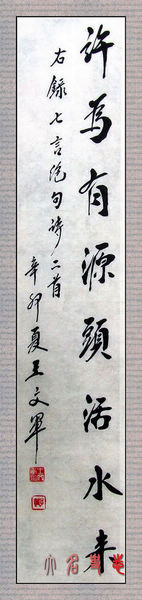 許為有源頭活水来
右錄七言絕句詩二首
辛卯夏王文軍